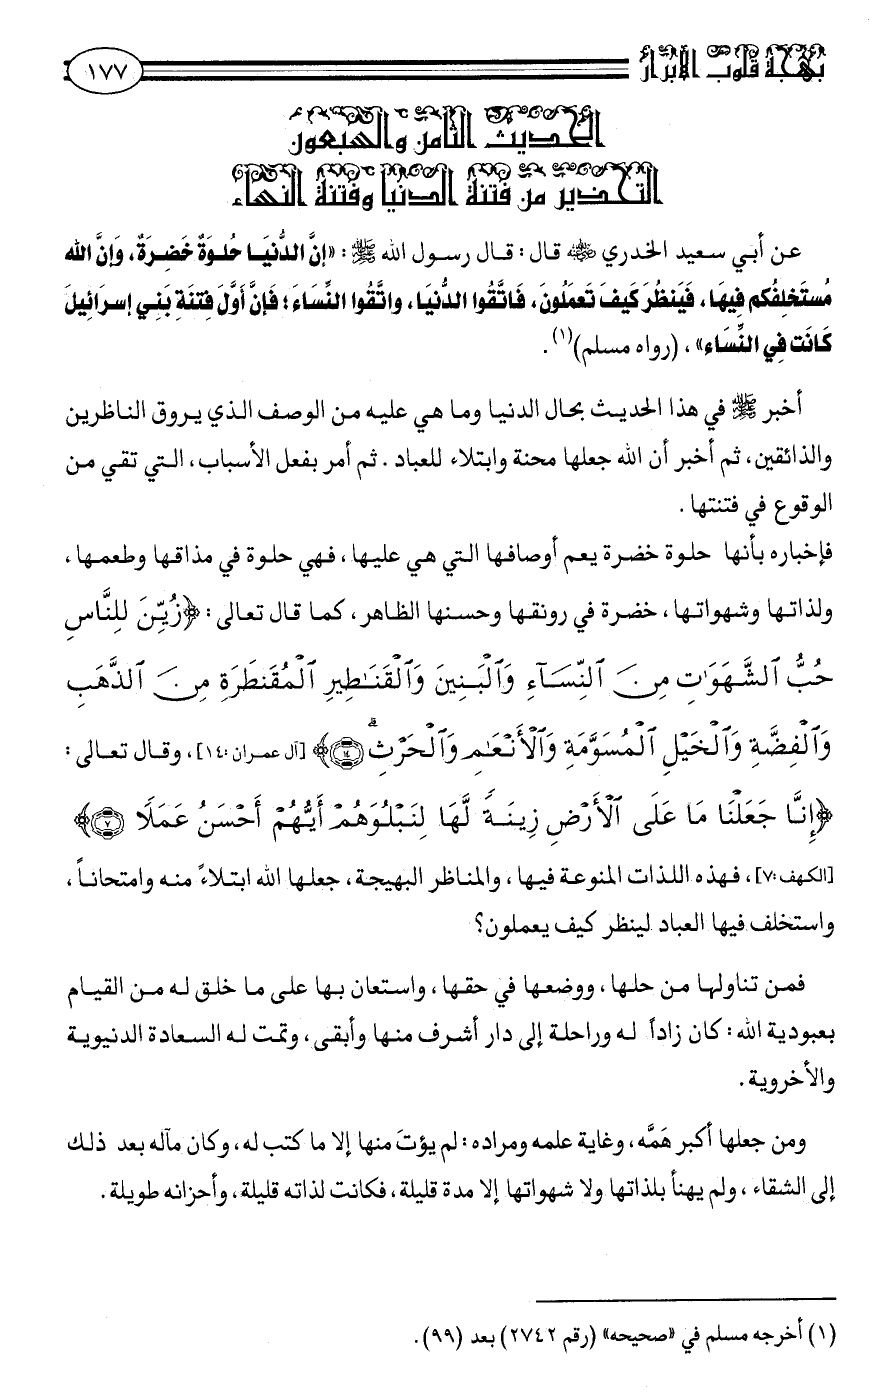 بهجة قلوب الأبرار
١٧٧
الحديث الثامن والسبعون
التحذير من فتنة الدنيا وفتنة النساء
عن أبي سعيد الخدري ﵁ قال: قال رسول الله ﷺ: «إِنَّ الدُّنْيَا حُلوَةٌ خَضِرَةٌ، وَإِنَّ الله
مُستَخلِفُكُم فِيهَا، فَيَنظُرَ كَيفَ تَعمَلُونَ، فَاتَّقُوا الدُّنْيَا، واتَّقُوا النِّسَاءَ؛ فَإِنَّ أَوَّلَ فِتنَةِ بَنِي إسرَائِيلَ
كَانَت فِي النِّسَاء»، (رواه مسلم)(١).
أخبر ﷺ في هذا الحديث بحال الدنيا وما هي عليه من الوصف الذي يروق الناظرين
والذائقين، ثم أخبر أن الله جعلها محنة وابتلاء للعباد. ثم أمر بفعل الأسباب، التي تقي من
الوقوع في فتنتها.
فإخباره بأنها حلوة خضرة يعم أوصافها التي هي عليها، فهي حلوة في مذاقها وطعمها،
ولذاتها وشهواتها، خضرة في رونقها وحسنها الظاهر، كما قال تعالى: ﴿زُيِّنَ لِلنَّاسِ
حُبُّ ٱلشَّهَوَٰتِ مِنَ ٱلنِّسَآءِ وَٱلْبَنِينَ وَٱلْقَنَٰطِيرِ ٱلْمُقَنطَرَةِ مِنَ ٱلذَّهَبِ
وَٱلْفِضَّةِ وَٱلْخَيْلِ ٱلْمُسَوَّمَةِ وَٱلْأَنْعَٰمِ وَٱلْحَرْثِ ۗ ١٤﴾ [آل عمران: ١٤]، وقال تعالى:
﴿إِنَّا جَعَلْنَا مَا عَلَى ٱلْأَرْضِ زِينَةً لَّهَا لِنَبْلُوَهُمْ أَيُّهُمْ أَحْسَنُ عَمَلًا ٧﴾
[الكهف: ٧]، فهذه اللذات المنوعة فيها، والمناظر البهيجة، جعلها الله ابتلاءً منه وامتحاناً،
واستخلف فيها العباد لينظر كيف يعملون؟
فمن تناولها من حلها، ووضعها في حقها، واستعان بها على ما خلق له من القيام
بعبودية الله: كان زاداً له وراحلة إلى دار أشرف منها وأبقى، وتمت له السعادة الدنيوية
والأخروية.
ومن جعلها أكبر هَمَّه، وغاية علمه ومراده: لم يؤتَ منها إلا ما كتب له، وكان مآله بعد ذلك
إلى الشقاء، ولم يهنأ بلذاتها ولا شهواتها إلا مدة قليلة، فكانت لذاته قليلة، وأحزانه طويلة.
(١) أخرجه مسلم في «صحيحه» (رقم ٢٧٤٢) بعد (٩٩).